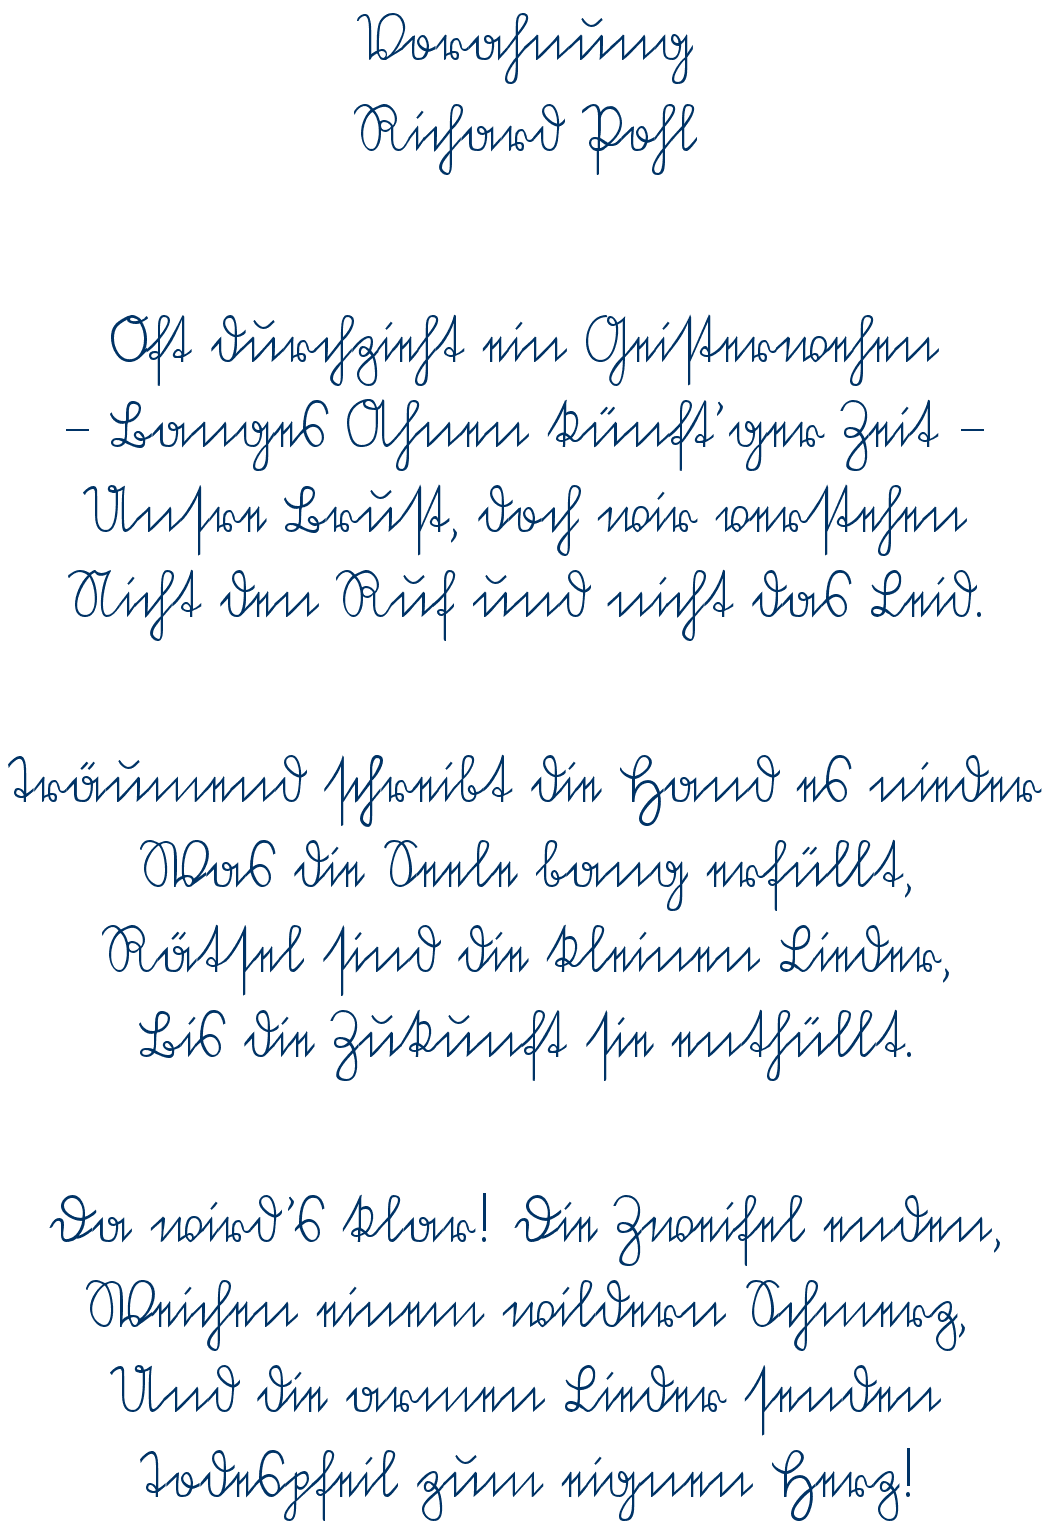 Vorahnung
Richard Pohl
Oft durchzieht ein Geisterwehen
– Banges Ahnen künft’ger Zeit –
Unsre Brust, doch wir verstehen
Nicht den Ruf und nicht das Leid.
Träumend schreibt die Hand es nieder
Was die Seele bang erfüllt,
Rätsel sind die kleinen Lieder,
Bis die Zukunft sie enthüllt.
Da wird’s klar! Die Zweifel enden,
Weichen einem wildern Schmerz,
Und die armen Lieder senden
Todespfeil zum eignen Herz!